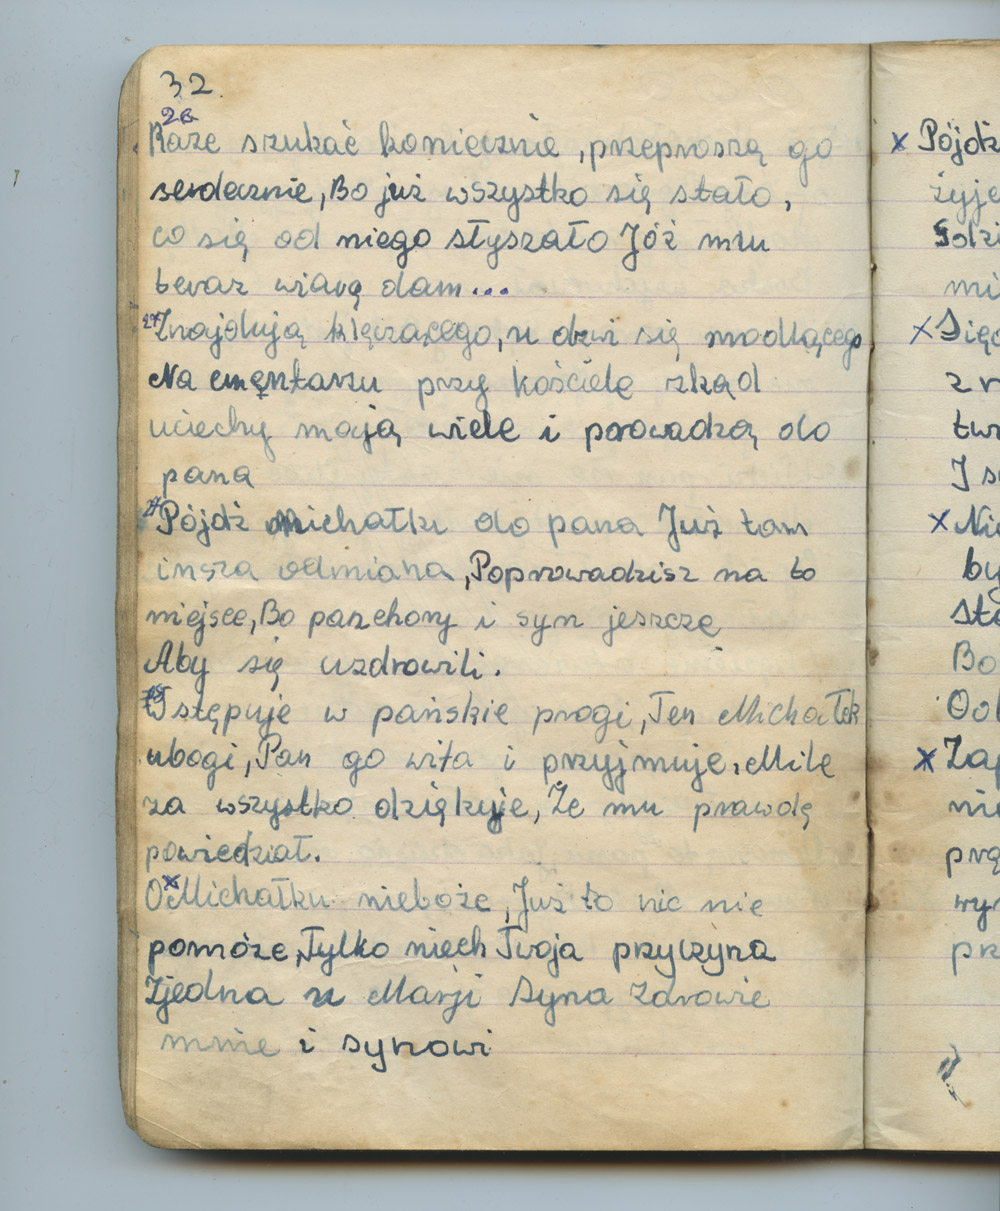 32.
26
Każe szukać koniecznie, przeproszą go
serdecznie, Bo już wszystko się stało,
co się od niego słyszało Jóż mru
teraz wiarę dam...
27 Znajdują klęczącego, u dzwi się modlącego
Na cmęntarzu przy kościele zkąd
uciechy mają wiele i prowadzą do
pana
27 Pójdź Michałku do pana Już tam
insza odmiana, Poprowadzisz na to
miejsce, Bo parchony i syn jeszcze
Aby się uzdrowili.
Wstępuje w pańskie progi, Ten Michałek
ubogi, Pan go wita i przyjmuje, Mile
za wszystko dziękuje, Że mu prawdę
powiedział.
O x Michałku nieboże, Już to nic nie
pomóże, Tylko niech Twoja przyczyna
Zjedna u Marji Syna zdrowie
mnie i synowi
x Pójdź
żyje
mi
x
z
I
x
Bo
x